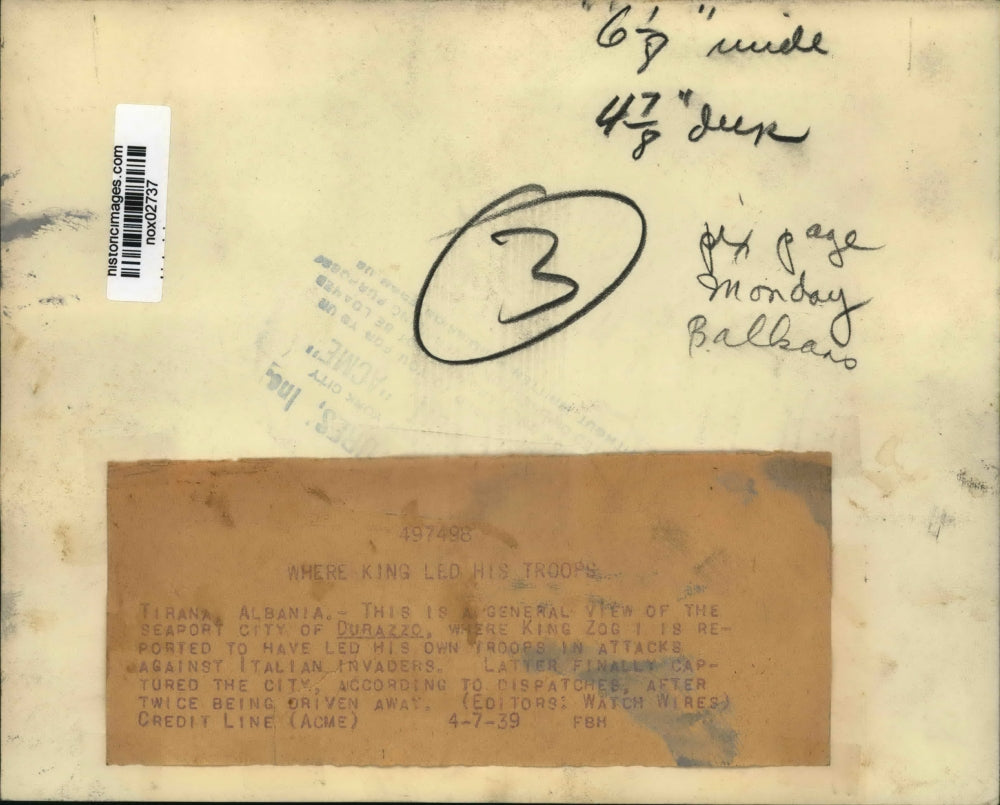 6 1/8" wide
4 7/8" deep
historicimages.com
nox02737
3
pix page
Monday
Balkans
"ACME"
YORK CITY
Inc.
497498
WHERE KING LED HIS TROOPS
TIRANA, ALBANIA.- THIS IS A GENERAL VIEW OF THE
SEAPORT CITY OF DURAZZO, WHERE KING ZOG I IS RE-
PORTED TO HAVE LED HIS OWN TROOPS IN ATTACKS
AGAINST ITALIAN INVADERS. LATTER FINALLY CAP-
TURED THE CITY, ACCORDING TO DISPATCHES, AFTER
TWICE BEING DRIVEN AWAY. (EDITORS: WATCH WIRES)
CREDIT LINE (ACME) 4-7-39 FBH